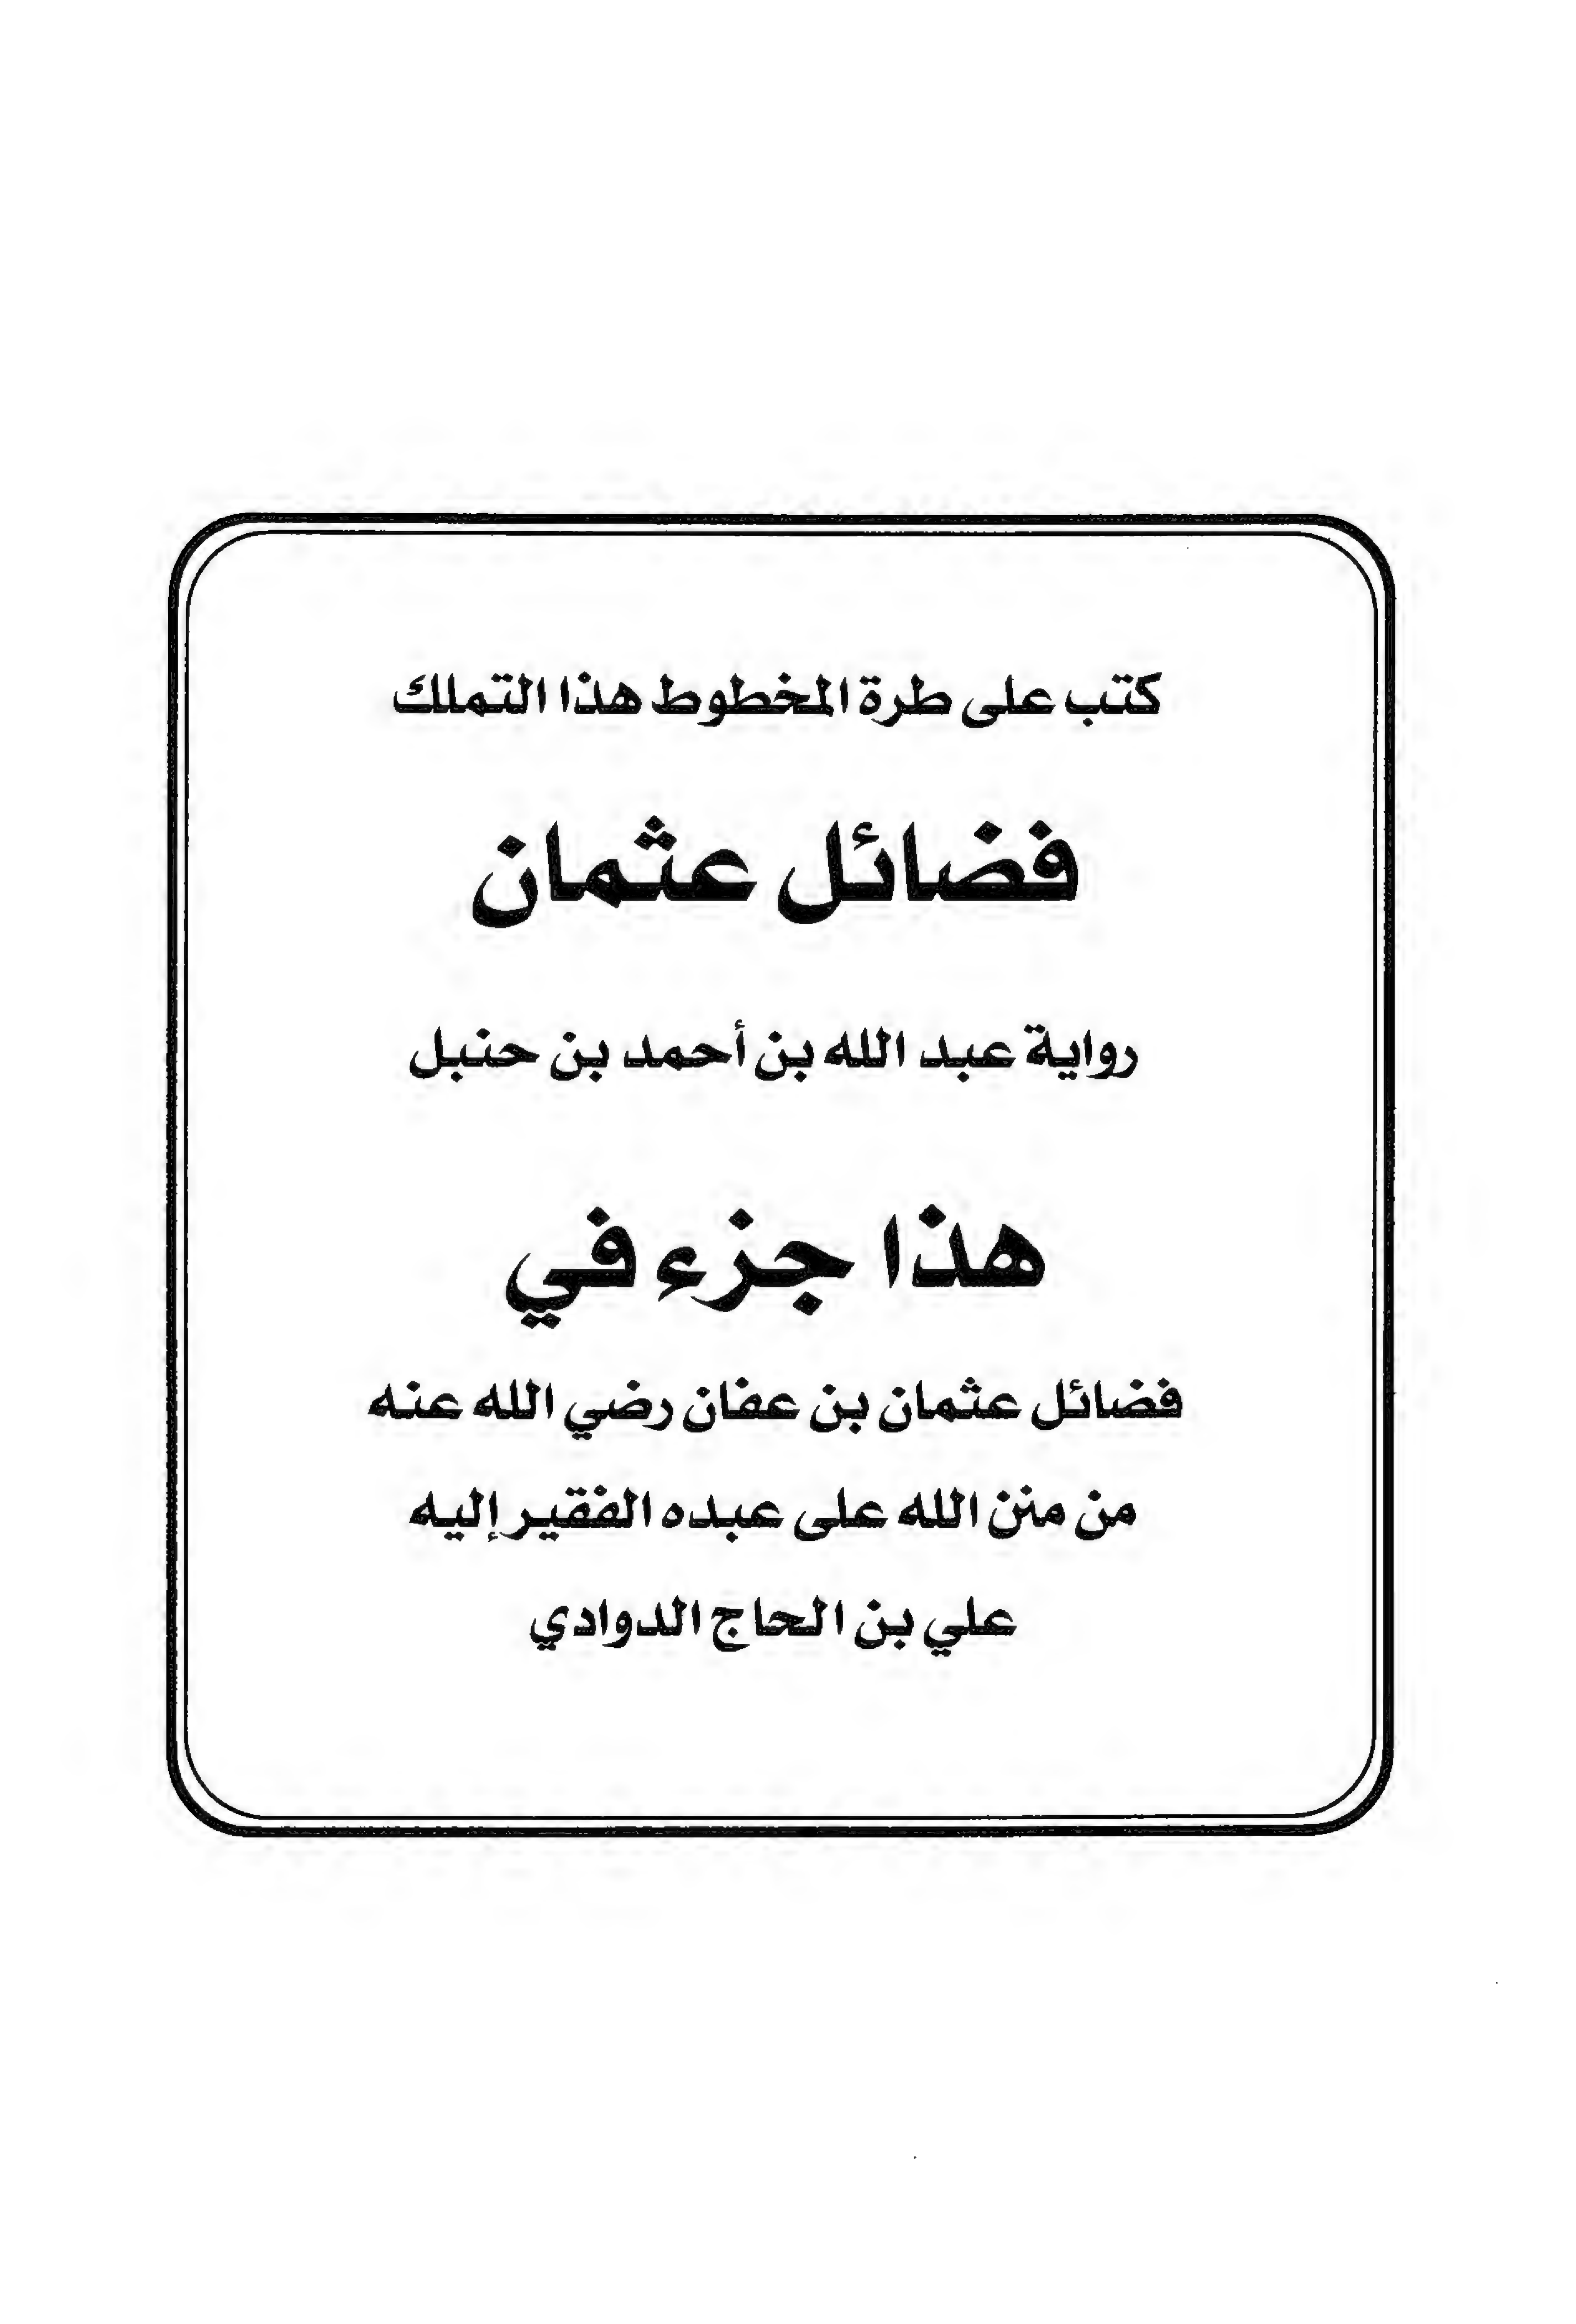 كتب على طرة المخطوط هذا التملك
فضائل عثمان
رواية عبد الله بن أحمد بن حنبل
هذا جزء في
فضائل عثمان بن عفان رضي الله عنه
من منن الله على عبده الفقير إليه
علي بن الحاج الدوادي